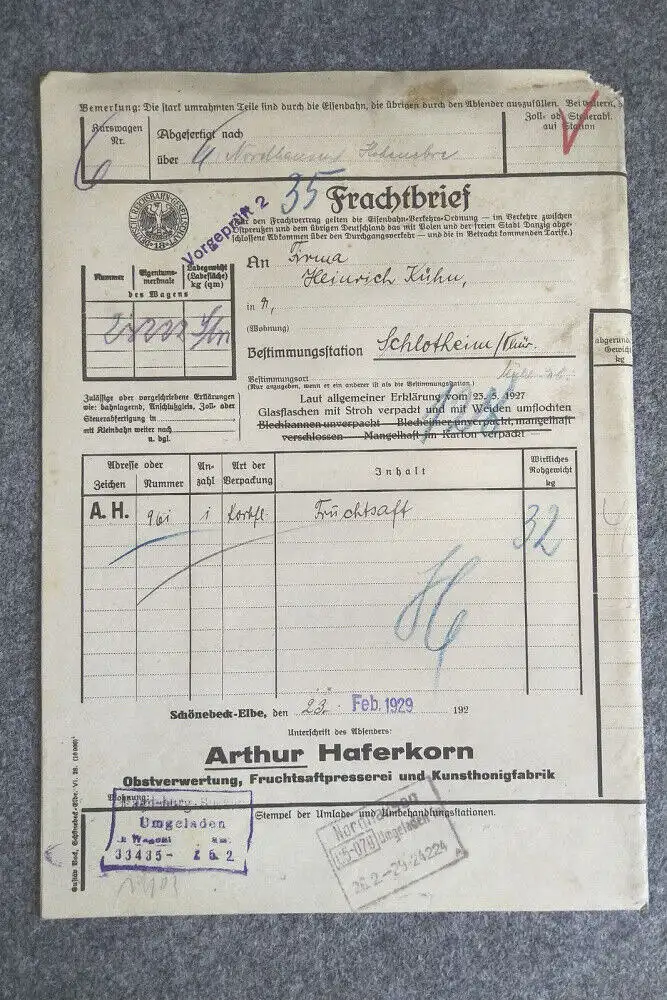 Bemerkung: Die stark umrahmten Teile sind durch die Eisenbahn, die übrigen durch den Absender auszufüllen. Bei
Kurswagen
Nr.
Abgefertigt nach
über
Nordhausen
Zoll- od. Steuerabf.
auf Station
6
35
Frachtbrief
Vorgeprüft 2
(Für den Frachtvertrag gelten die Eisenbahn-Verkehrs-Ordnung — im Verkehr zwischen
Ostpreußen und dem übrigen Deutschland das mit Polen und der freien Stadt Danzig abge-
schlossene Abkommen über den Durchgangsverkehr — und die in Betracht kommenden Tarife.)
An Firma
Heinrich Kühn,
in
(Wohnung)
Bestimmungsstation Schlotheim/Thür.
Bestimmungsort
(Nur anzugeben, wenn er ein anderer ist als die Bestimmungsstation.)
Nummer
Eigentums-
merkmale
Ladegewicht
(Ladefläche)
kg (qm)
des Wagens
Zulässige oder vorgeschriebene Erklärungen
wie: bahnlagernd, Anschlußgleis, Zoll- oder
Steuerabfertigung in
mit Kleinbahn weiter nach
u. dgl.
Laut allgemeiner Erklärung vom 23. 5. 1927
Glasflaschen mit Stroh verpackt und mit Weiden umflochten
Blechkannen unverpackt — Blecheimer unverpackt, mangelhaft
verschlossen — Mangelhaft in Karton verpackt —
abgerund.
Gewicht
kg
Adresse oder
Zeichen
Nummer
An-
zahl
Art der
Verpackung
Inhalt
Wirkliches
Rohgewicht
kg
A. H. 961 1 Korbfl. Fruchtsaft 32
Schönebeck-Elbe, den 23. Feb. 1929 192
Unterschrift des Absenders:
Arthur Haferkorn
Obstverwertung, Fruchtsaftpresserei und Kunsthonigfabrik
Wohnung:
Stempel der Umlade- und Umbehandlungsstationen.
Umgeladen
Wagen
33435- 26.2
Nordhausen
Umgeladen
26.2.-29-24224